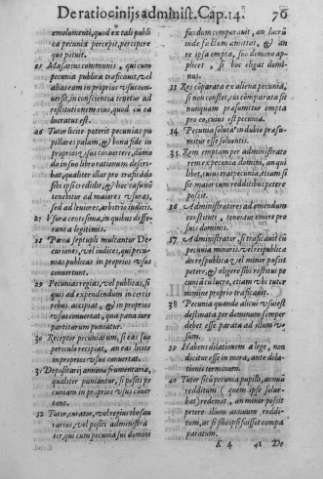 De ratiocinijs administ. Cap. 14. 76
emolumenti, quod ex tali publi
ca pecunia percepit, percipere
que potuit.
25 Massarius communis, qui cum
pecunia publica traficauit, vel
alias eam in proprios vsus con-
uersit, in conscientia tenetur ad
restitutionem eius, quod cũ ea
lucratus est.
26 Tutor licite poterit pecunias pu
pillares palam, & bona fide in
proprios vsus conuertere, dum
de in suo libro rationum descri-
bat, qualiter illar pro traficãdo
sibi ipsi credidit, & hoc casu nõ
tenebitur ad maiores vsuras,
sed ad leuiores, arbitrio iudicis.
27 Vsura centessima, in quibus diffe-
rant a legitimis.
28 Pœna septupli multantur De
curiones, vel iudices, qui pecu-
nias publicas in proprios vsus
conuertunt.
29 Pecunias regias, vel publicas, si
quis ad expendendum in certis
rebus accipiat, & in proprios
vsus conuertat, qua pœna iure
partitarum puniatur.
30 Receptor pecuniarum, si eas suo
periculo recipiat, an eas licite
in proprios vsus conuertat.
31 Depositarij annonæ frumentariæ,
qualiter puniantur, si positi pe
cuniam in proprios vsus conuer
tant.
32 Tutor, curator, vel regius thesau
rarius, vel positi administra
tor, qui cum pecunia sui domini
fundum comparauit, an lucrũ
inde factum amittat, & an
re ipsa empta, suo domino ap-
plicet, si hoc eligat domi-
nus.
33 Res cõparata ex aliena pecunia,
si non constet, sic cõparata sit
nunquam præsumitur empta
pro eo, cuius est pecunia.
34 Pecunia soluta in dubio præsu-
mitur esse soluentis.
35 Rem emptam per administrato
rem ex pecunia domini, an qui
libet, cuius erat pecunia, etiam si
sit maior cum redditibus petere
possit.
36 Administratores ad emendum
constituti, tenentur emere pro
suis dominis.
37 Administrator, si traficauit cũ
pecunia minoris, vel reipublicæ
an respublica vel minor possit
petere, & eligere sibi restitui pe
cuniã cũ lucro, etiam vbi tutor
nomine proprio traficauit.
38 Pecunia quando alicui vsui est
destinata per dominum semper
debet esse parata ad illum vs-
sum.
39 Habens dilationem a lege, non
dicitur esse in mora, ante dila-
tionis terminum.
40 Tutor si cũ pecunia pupilli, annuũ
redditum (quem ipse solue-
bat) redemit, an minor possit
petere illum annuum reddi-
tum, ac si sibi ipsi fuisset com-
paratum.
K 4 41 De